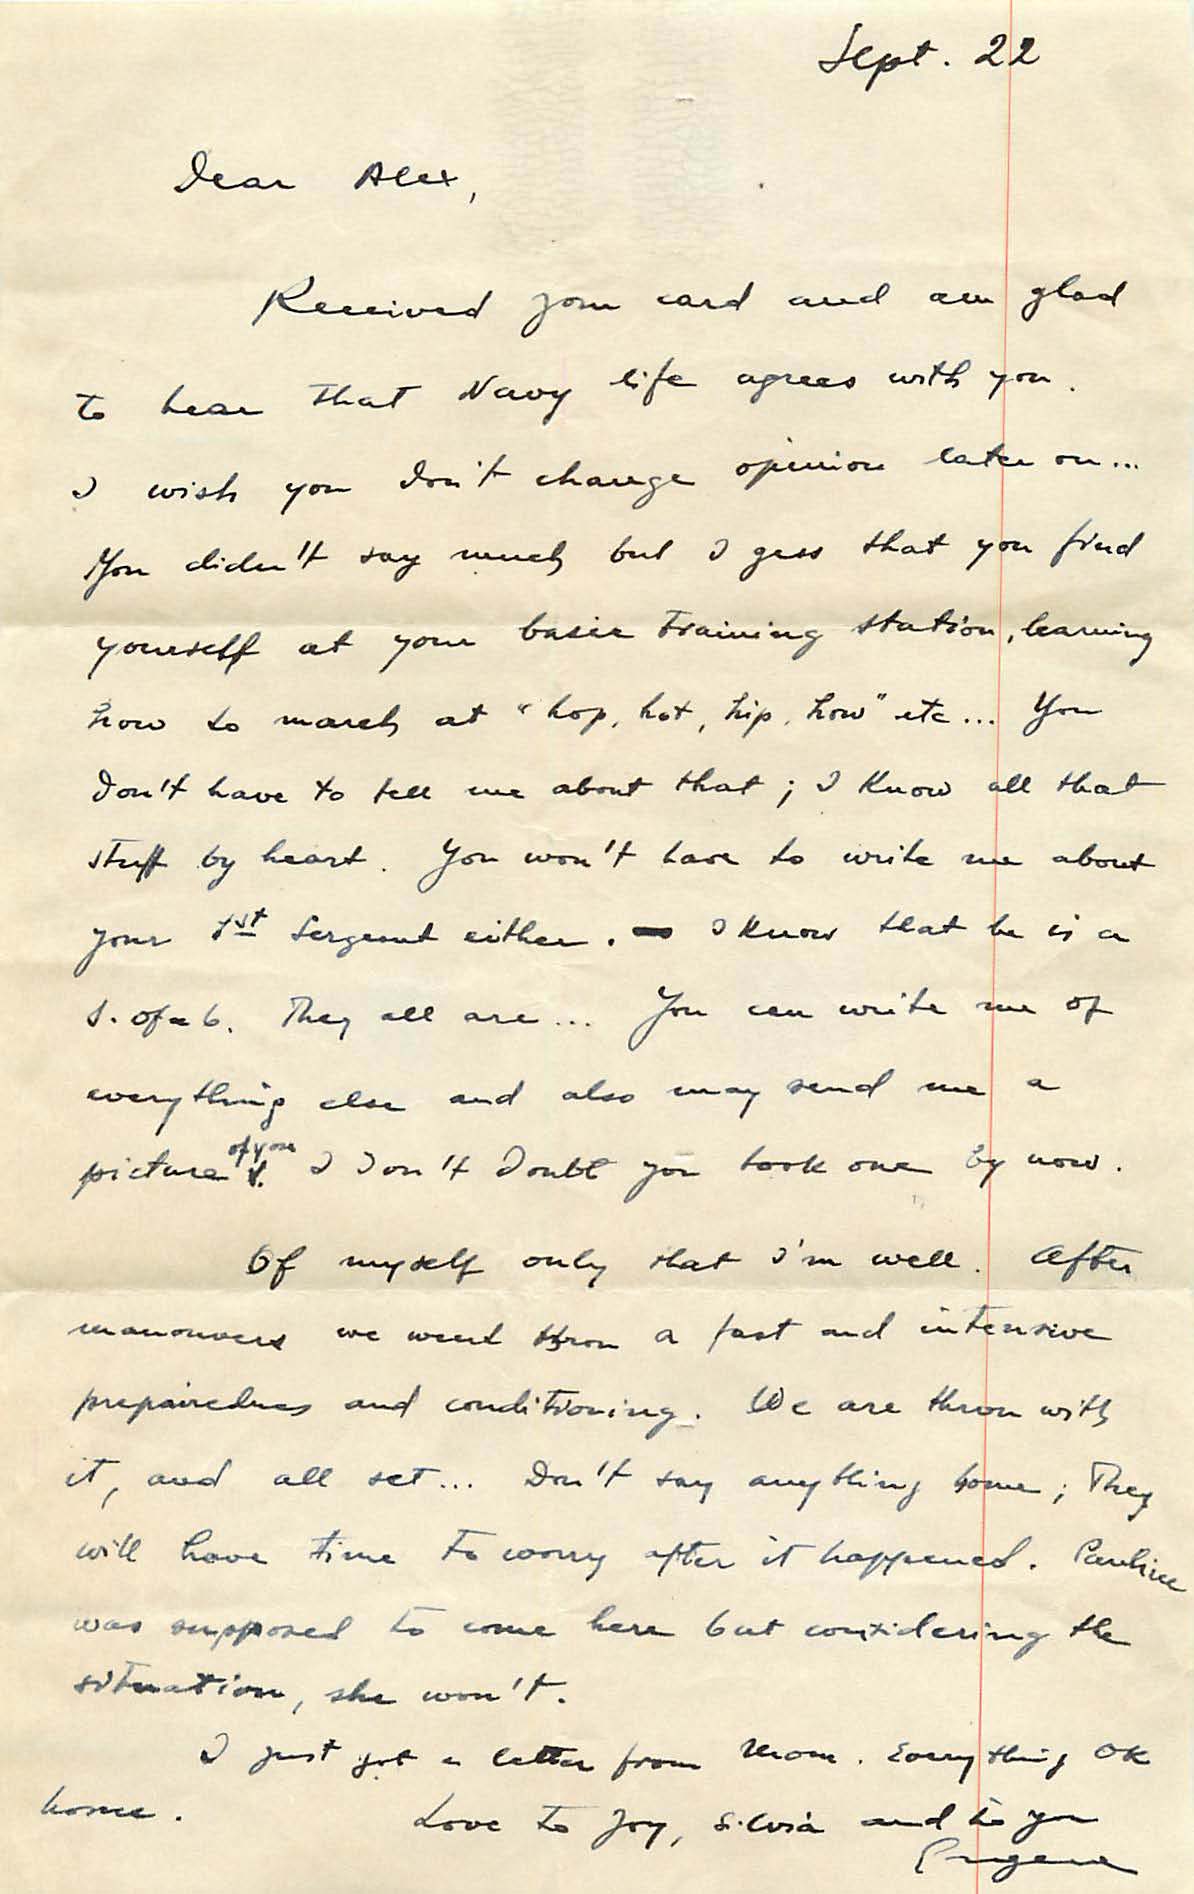 Sept. 22
Dear Alex,
Received your card and am glad
to hear that Navy life agrees with you.
I wish you don't change opinion later on...
You didn't say much but I gess that you find
yourself at your basic training station, learning
how to march at "hop, hot, hip, how" etc... You
don't have to tell me about that; I know all that
stuff by heart. You won't have to write me about
your 1st Sergeant either. I know that he is a
s. of a b. They all are... You can write me of
everything else and also may send me a
picture of you. I don't doubt you took one by now.
Of myself only that I'm well. After
manouvers we went throu a fast and intensive
prepairednes and conditioning. We are throu with
it, and all set... Don't say anything home; They
will have time to worry after it happened. Pauline
was supposed to come here but considering the
situation, she won't.
I just got a letter from Mom. Everything OK
home.
Love to Joy, Silvia and to you
Eugene